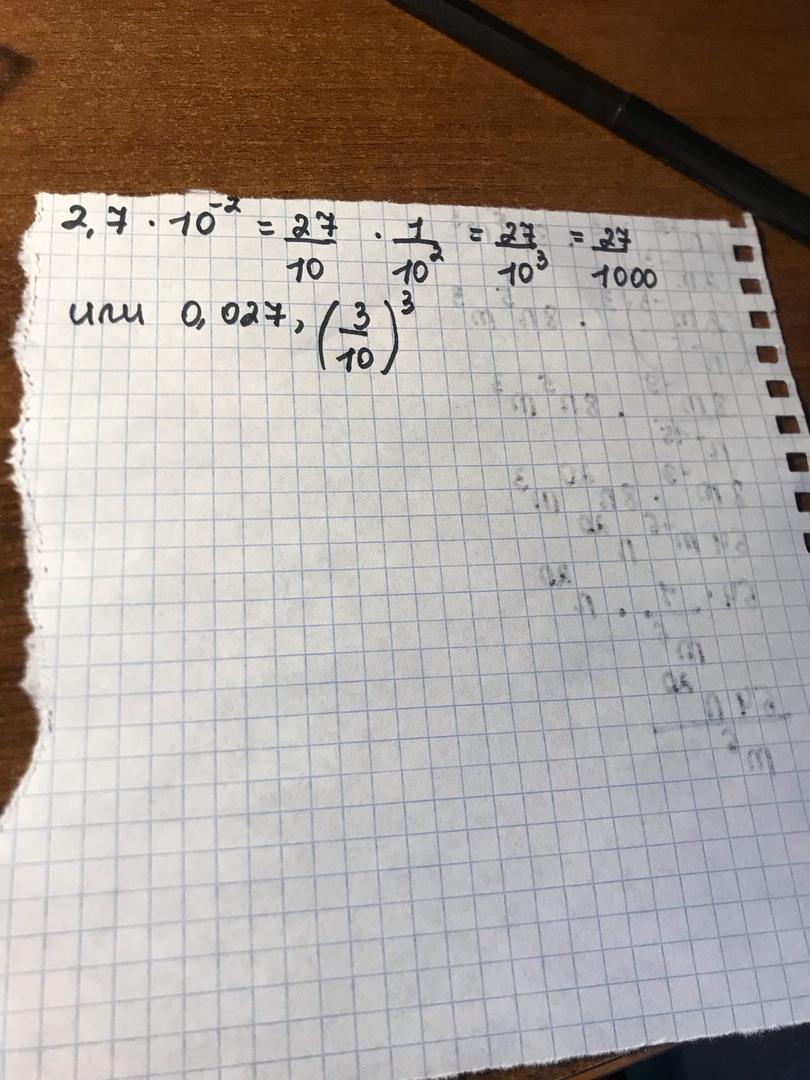 2,7 · 10⁻² = 27/10 · 1/10² = 27/10³ = 27/1000
или 0,027, (3/10)³